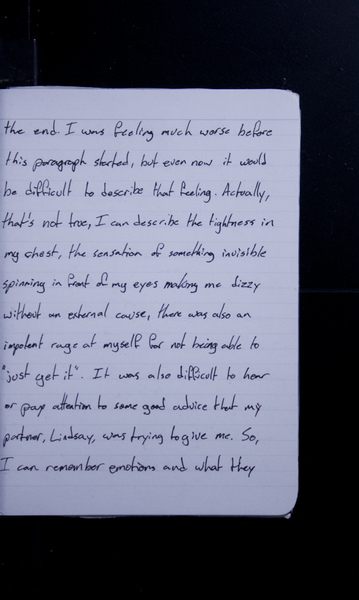 the end. I was feeling much worse before
this paragraph started, but even now it would
be difficult to describe that feeling. Actually,
that's not true, I can describe the tightness in
my chest, the sensation of something invisible
spinning in front of my eyes making me dizzy
without an external cause, there was also an
impotent rage at myself for not being able to
"just get it". It was also difficult to hear
or pay attention to some good advice that my
partner, Lindsay, was trying to give me. So,
I can remember emotions and what they